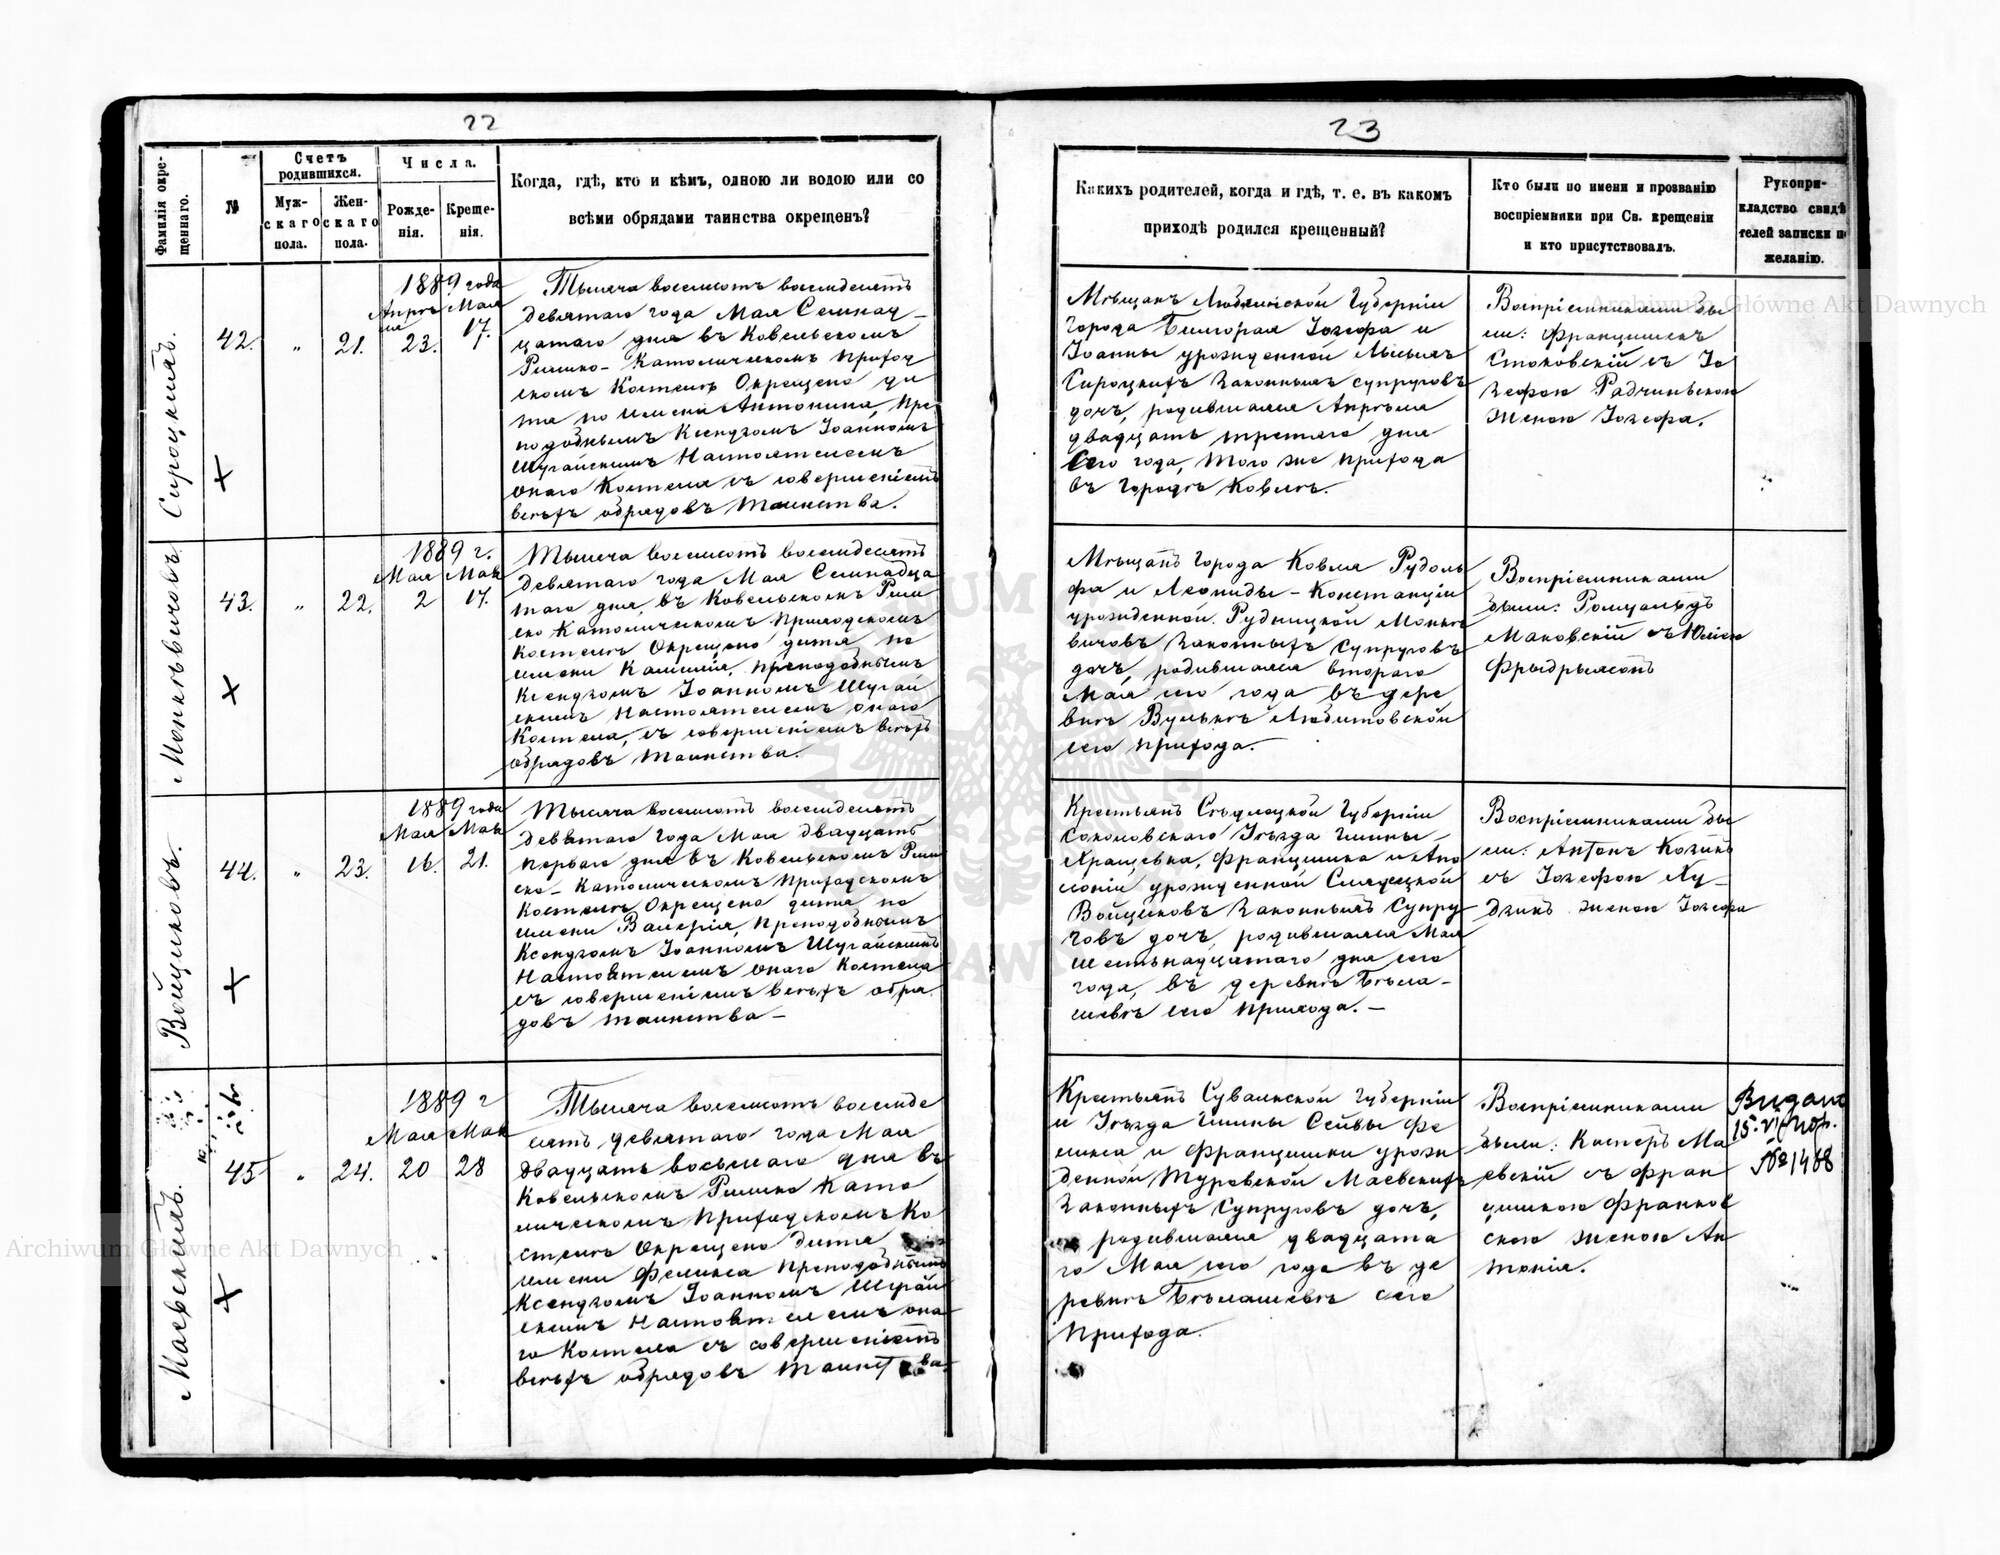 22
Фамилія окре-
щеннаго.
№
Счетъ
родившихся.
Муж-
скаго
пола.
Жен-
скаго
пола.
Числа.
Рожде-
нія.
Креще-
нія.
Когда, гдѣ, кто и кѣмъ, одною ли водою или со
всѣми обрядами таинства окрещенъ?
Сироцкихъ.
42.
"
21.
1889 года
Апрѣ Мая
ля
23.
17.
Тысяча восемьсотъ восемьдесятъ
девятаго года Мая Семнад-
цатаго дня въ Ковельскомъ
Римско-Католическомъ Приход
скомъ Костелѣ Окрещено ди
тя по имени Антонина, Пре
подобнымъ Ксендзомъ Іоанномъ
Шугайскимъ Настоятелемъ
онаго Костела съ совершеніемъ
всѣхъ обрядовъ таинства.
Моньквичовъ
43.
"
22.
1889 г.
Мая Мая
2
17.
Тысяча восемьсотъ восемьдесятъ
девятаго года Мая Семнадца
таго дня, въ Ковельскомъ Рим
ско Католическомъ Приходскомъ
Костелѣ Окрещено дитя по
имени Камилія, Преподобнымъ
Ксендзомъ Іоанномъ Шугай
скимъ Настоятелемъ онаго
Костела, съ совершеніемъ всѣхъ
обрядовъ таинства.
Войциковъ.
44.
"
23.
1889 года
Мая Мая
16.
21.
Тысяча восемьсотъ восемьдесятъ
девятаго года Мая двадцать
перваго дня въ Ковельскомъ Рим
ско-Католическомъ Приходскомъ
Костелѣ Окрещено дитя по
имени Валерія, Преподобнымъ
Ксендзомъ Іоанномъ Шугайскимъ
Настоятелемъ онаго Костела
съ совершеніемъ всѣхъ обря
довъ таинства-
Маевскихъ.
45
"
24.
1889 г
Мая Мая
20
28
Тысяча восемьсотъ восемьде
сятъ девятаго года Мая
двадцать восьмаго дня въ
Ковельскомъ Римско Като
лическомъ Приходскомъ Ко
стелѣ Окрещено дитя
имени Феликса Преподобнымъ
Ксендзомъ Іоанномъ Шугай
скимъ Настоятелемъ она
го Костела съ совершеніемъ
всѣхъ обрядовъ таинства
23
Какихъ родителей, когда и гдѣ, т. е. въ какомъ
приходѣ родился крещенный?
Кто были по имени и прозванію
воспріемники при Св. крещеніи
и кто присутствовалъ.
Рукопри-
кладство свидѣ
телей записки п
желанію.
Мѣщанъ Люблинской Губерніи
Города Билгорая Іозефа и
Іоанны урожденной
Сироцкихъ Законныхъ супруговъ
дочь, родившаяся Апрѣля
двадцать третьяго дня
Сего года, того же прихода
въ Городѣ Ковлѣ.
Воспріемниками бы
ли: Францишекъ
Стоковскій съ Іо
зефою Радчинскою
женою Іозефа.
Мѣщанъ Города Ковля Рудоль
фа и Леониды-Констанціи
урожденной Рудницкой Моньк
вичовъ Законныхъ Супруговъ
дочь, родившаяся втораго
Мая сего года въ дере
внѣ Вулькѣ Любитовской
сего прихода.
Воспріемниками
были: Ромуальдъ
Маковскій съ Юліею
Фрыдрыхсонъ
Крестьянъ Сѣдлецкой Губерніи
Соколовскаго Уѣзда Гмины
Хращевка, Францишка и Апо
лоніи урожденной
Войциковъ Законныхъ Супру
говъ дочь, родившаяся Мая
шестьнадцатаго дня сего
года, въ деревнѣ Бѣла-
шевѣ сего прихода.-
Воспріемниками бы
ли: Антонъ Козикъ
съ Іозефою Ху-
дзикъ женою Іозефа
Крестьянъ Сувалкской Губерніи
и Уѣзда Гмины Сейвы Фе
ликса и Францишки урож
денной Туровской Маевскихъ
Законныхъ Супруговъ дочь,
родившаяся двадцата
го Мая сего года въ де
ревнѣ Бѣлашевѣ сего
Прихода.
Воспріемниками
были: Касперъ Ма
евскій съ Фран
цишкою Франков
скою женою Ан
тонія.
Видана
№ 1468
Archiwum Główne Akt Dawnych
Archiwum Główne Akt Dawnych